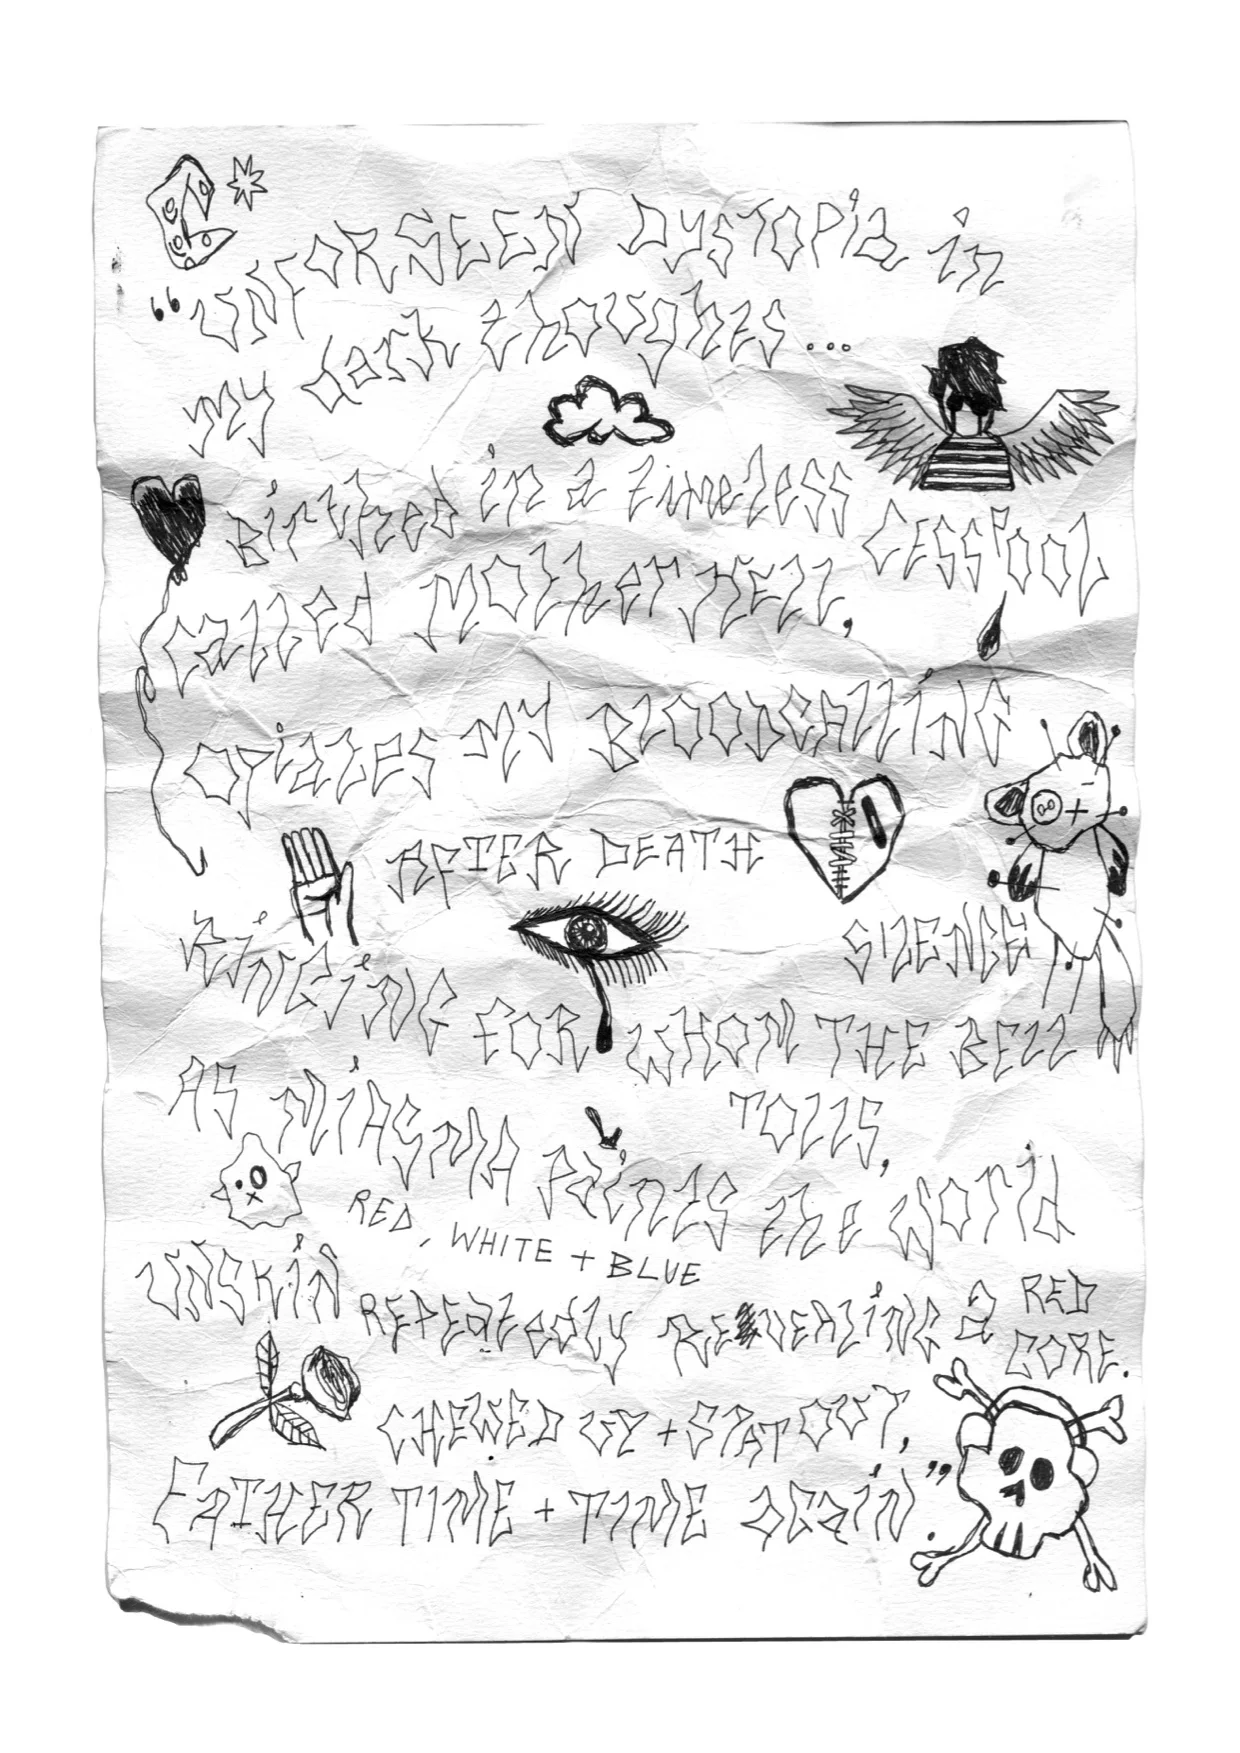 “UNFORSEEN DYSTOPia in
my dark thoughts...
Birthed in a timeless CESSPOOL
Called MOther HELL,
Opiates MY BLOODCALLiNG
AFTER DEATH
SILENCE
RiNGiNG FOR WHOM THE BELL
TOLLS,
AS MiASMA Paints the World
RED, WHITE + BLUE
UNSKiN REPEatedly REVEALiNG a RED
CORE.
CHEWED UY + SPAT OUT,
FATHER TIME + TIME AGaiN”.